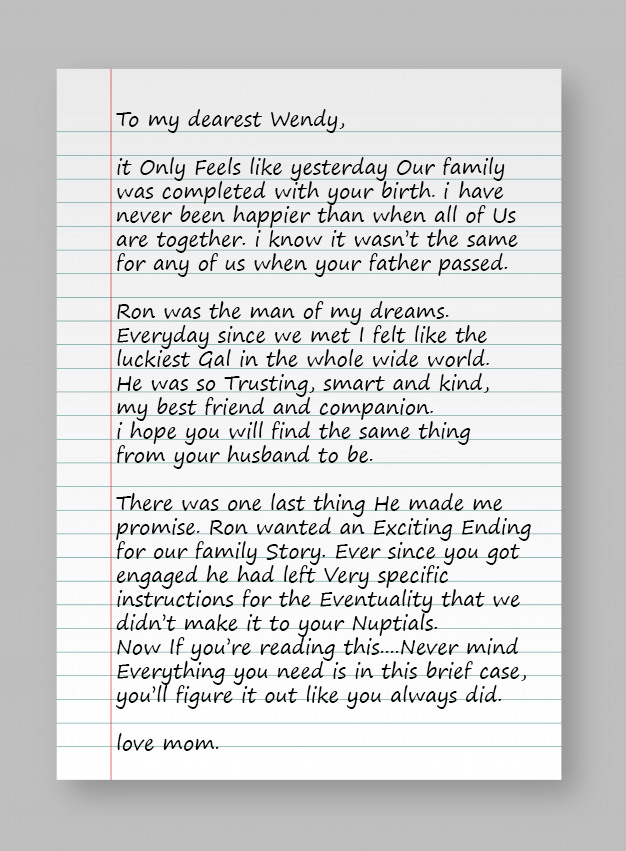 To my dearest Wendy,
it Only Feels like yesterday Our family
was completed with your birth. i have
never been happier than when all of Us
are together. i know it wasn't the same
for any of us when your father passed.
Ron was the man of my dreams.
Everyday since we met I felt like the
luckiest Gal in the whole wide world.
He was so Trusting, smart and kind,
my best friend and companion.
i hope you will find the same thing
from your husband to be.
There was one last thing He made me
promise. Ron wanted an Exciting Ending
for our family Story. Ever since you got
engaged he had left Very specific
instructions for the Eventuality that we
didn't make it to your Nuptials.
Now If you're reading this....Never mind
Everything you need is in this brief case,
you'll figure it out like you always did.
love mom.